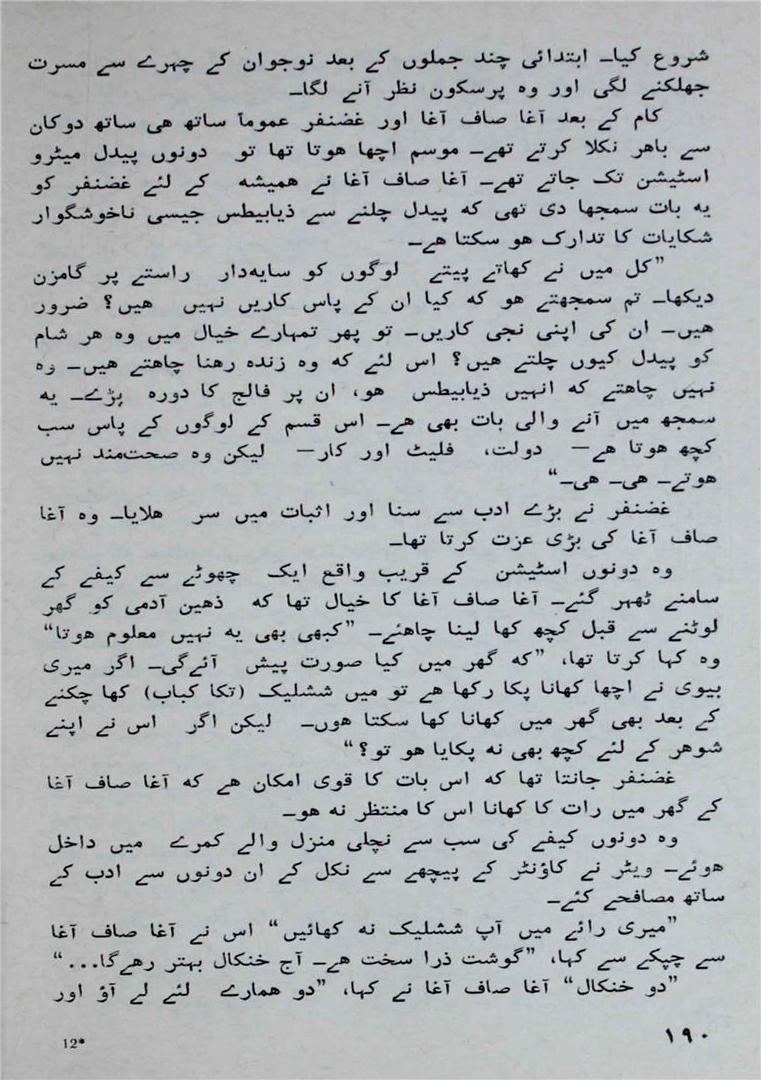 شروع کیا۔ ابتدائی چند جملوں کے بعد نوجوان کے چہرے سے مسرت
جھلکنے لگی اور وہ پرسکون نظر آنے لگا۔
کام کے بعد آغا صاف آغا اور غضنفر عموماً ساتھ ھی ساتھ دوکان
سے باھر نکلا کرتے تھے۔ موسم اچھا ھوتا تھا تو دونوں پیدل میٹرو
اسٹیشن تک جاتے تھے۔ آغا صاف آغا نے ھمیشہ کے لئے غضنفر کو
یہ بات سمجھا دی تھی کہ پیدل چلنے سے ذیابیطس جیسی ناخوشگوار
شکایات کا تدارک ھو سکتا ھے۔
”کل میں نے کھاتے پیتے لوگوں کو سایہ‌دار راستے پر گامزن
دیکھا۔ تم سمجھتے ھو کہ کیا ان کے پاس کاریں نہیں ھیں؟ ضرور
ھیں۔ ان کی اپنی نجی کاریں۔ تو پھر تمہارے خیال میں وہ ھر شام
کو پیدل کیوں چلتے ھیں؟ اس لئے کہ وہ زندہ رھنا چاھتے ھیں۔ وہ
نہیں چاھتے کہ انہیں ذیابیطس ھو، ان پر فالج کا دورہ پڑے۔ یہ
سمجھ میں آنے والی بات بھی ھے۔ اس قسم کے لوگوں کے پاس سب
کچھ ھوتا ھے— دولت، فلیٹ اور کار— لیکن وہ صحت‌مند نہیں
ھوتے۔ ھی۔ ھی۔“
غضنفر نے بڑے ادب سے سنا اور اثبات میں سر ھلایا۔ وہ آغا
صاف آغا کی بڑی عزت کرتا تھا۔
وہ دونوں اسٹیشن کے قریب واقع ایک چھوٹے سے کیفے کے
سامنے ٹھہر گئے۔ آغا صاف آغا کا خیال تھا کہ ذھین آدمی کو گھر
لوٹنے سے قبل کچھ کھا لینا چاھئے۔ ”کبھی بھی یہ نہیں معلوم ھوتا“
وہ کہا کرتا تھا، ”کہ گھر میں کیا صورت پیش آئے‌گی۔ اگر میری
بیوی نے اچھا کھانا پکا رکھا ھے تو میں ششلیک (تکا کباب) کھا چکنے
کے بعد بھی گھر میں کھانا کھا سکتا ھوں۔ لیکن اگر اس نے اپنے
شوھر کے لئے کچھ بھی نہ پکایا ھو تو؟“
غضنفر جانتا تھا کہ اس بات کا قوی امکان ھے کہ آغا صاف آغا
کے گھر میں رات کا کھانا اس کا منتظر نہ ھو۔
وہ دونوں کیفے کی سب سے نچلی منزل والے کمرے میں داخل
ھوئے۔ ویٹر نے کاؤنٹر کے پیچھے سے نکل کے ان دونوں سے ادب کے
ساتھ مصافحے کئے۔
”میری رائے میں آپ ششلیک نہ کھائیں“ اس نے آغا صاف آغا
سے چپکے سے کہا، ”گوشت ذرا سخت ھے۔ آج خنکال بہتر رھے‌گا...“
”دو خنکال“ آغا صاف آغا نے کہا، ”دو ھمارے لئے لے آؤ اور
۱۹۰
12*